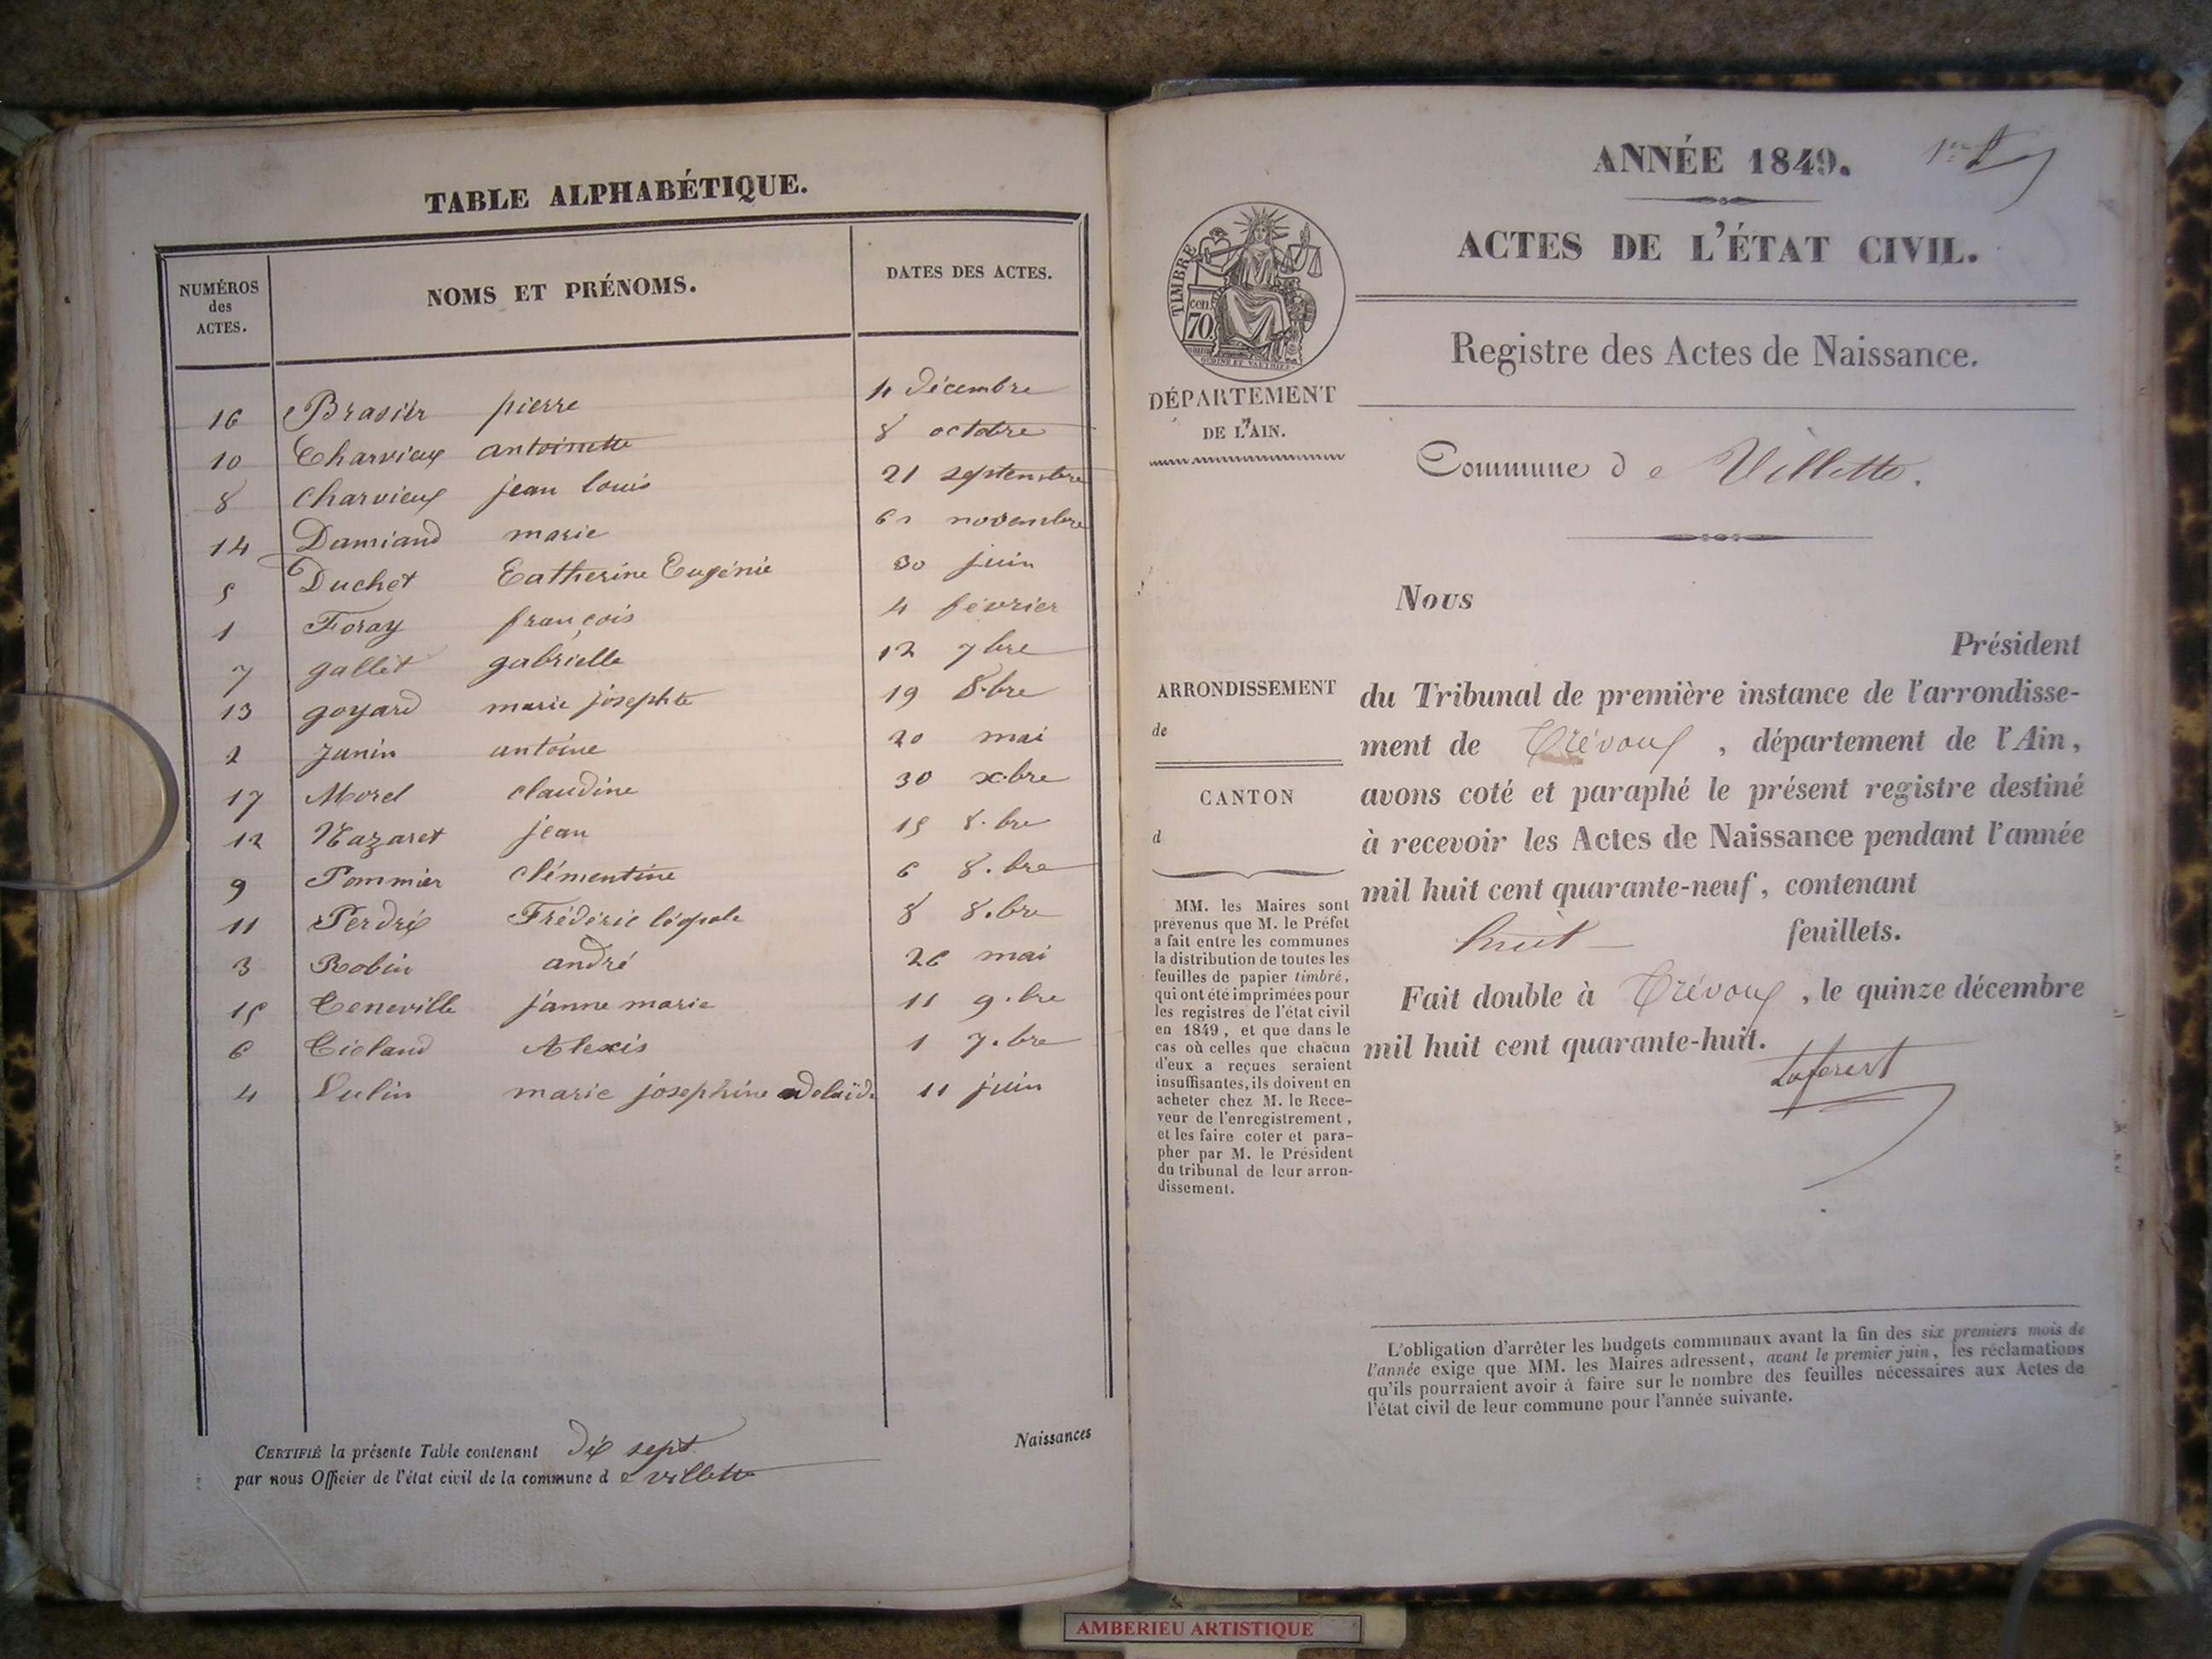 TABLE ALPHABÉTIQUE.
NUMÉROS des ACTES. NOMS ET PRÉNOMS. DATES DES ACTES.
16 Brasier pierre 4 décembre
10 Charvieux antoinette 8 octobre
8 Charvieux jean louis 21 septembre
14 Damiand marie 6 novembre
5 Duchet Catherine Eugénie 30 juin
1 Foray françois 4 février
7 gallet gabrielle 12 7bre
13 goyard marie josephte 19 8.bre
2 Janin antoine 20 mai
17 Morel claudine 30 x.bre
12 Nazaret jean 15 8.bre
9 Pommier clémentine 6 8.bre
11 Perdrix Frédéric 8 8.bre
3 Robin andré 26 mai
15 Teneville janne marie 11 9.bre
6 Alexis 1 7.bre
4 marie joséphine adelaïde 11 juin
CERTIFIÉ la présente Table contenant dix sept
par nous Officier de l'état civil de la commune d e villette
Naissances
ANNÉE 1849.
ACTES DE L'ÉTAT CIVIL.
TIMBRE
cen. 70
Registre des Actes de Naissance.
DÉPARTEMENT
DE L'AIN.
Commune d e Villette.
Nous
Président
ARRONDISSEMENT
de
CANTON
d
du Tribunal de première instance de l'arrondisse-
ment de Trévoux, département de l'Ain,
avons coté et paraphé le présent registre destiné
à recevoir les Actes de Naissance pendant l'année
mil huit cent quarante-neuf, contenant
huit feuillets.
Fait double à Trévoux, le quinze décembre
mil huit cent quarante-huit.
MM. les Maires sont
prévenus que M. le Préfet
a fait entre les communes
la distribution de toutes les
feuilles de papier timbré,
qui ont été imprimées pour
les registres de l'état civil
en 1849, et que dans le
cas où celles que chacun
d'eux a reçues seraient
insuffisantes, ils doivent en
acheter chez M. le Rece-
veur de l'enregistrement,
et les faire coter et para-
pher par M. le Président
du tribunal de leur arron-
dissement.
L'obligation d'arrêter les budgets communaux avant la fin des six premiers mois de
l'année exige que MM. les Maires adressent, avant le premier juin, les réclamations
qu'ils pourraient avoir à faire sur le nombre des feuilles nécessaires aux Actes de
l'état civil de leur commune pour l'année suivante.
AMBERIEU ARTISTIQUE